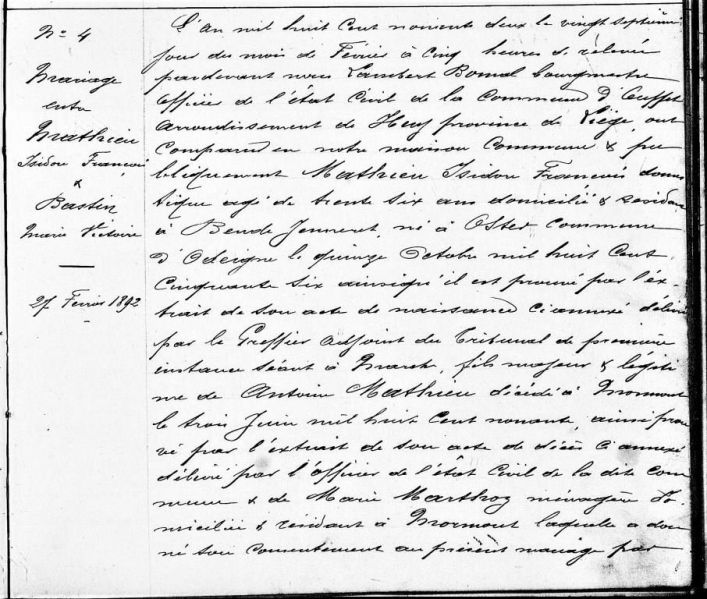 N° 4
Mariage
entre
Mathieu
Isidore François
&
Bastin
Marie Victoire
27 Février 1892
L'An mil huit Cent nonante deux le vingt septième
jour du mois de Février à Cinq heures de relevée
pardevant nous Lambert Bomal bourgmestre
Officier de l'état Civil de la Commune d'Ouffet
Arrondissement de Huy province de Liége, ont
Comparu en notre maison Commune & pu
bliquement Mathieu Isidore François domes
tique agé de trente six ans domicilié & résidant
à Bende Jenneret, né à Oster Commune
d'Odeigne le quinze Octobre mil huit Cent
Cinquante six ainsi qu'il est prouvé par l'ex-
trait de son acte de naissance ci annexé délivré
par le Greffier Adjoint du Tribunal de première
instance séant à March, fils majeur & légiti
me de Antoine Mathieu décédé à Mormont
le trois Juin mil huit Cent nonante, ainsi prou
vé par l'extrait de son acte de décès ci annexé
délivré par l'Officier de l'état Civil de la dite com
mune & de Marie Marthoz ménagère do-
miciliée & résidant à Mormont laquelle a don
né son Consentement au présent mariage par